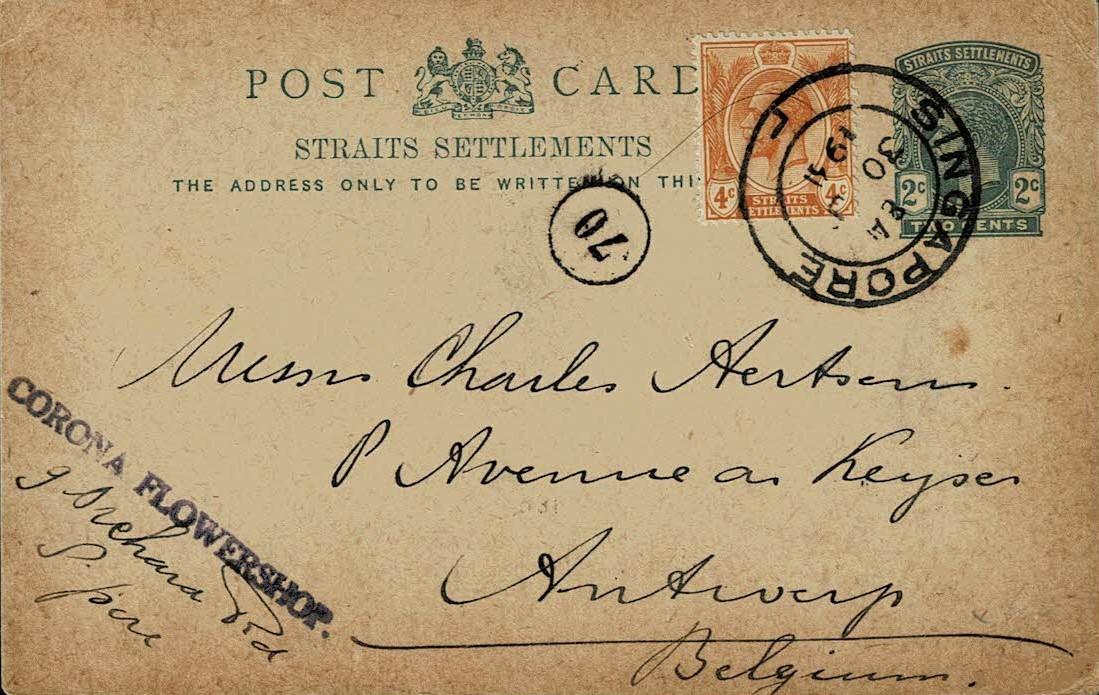 POST CARD
STRAITS SETTLEMENTS
THE ADDRESS ONLY TO BE WRITTEN ON THI
4c 4c
STRAITS
SETTLEMENTS
STRAITS SETTLEMENTS
2c 2c
TWO CENTS
SINGAPORE
30
70
Messrs Charles Aertsens.
Avenue de Keyser
Antwerp
Belgium.
CORONA FLOWERSHOP.
9 Orchard Rd
S. pore